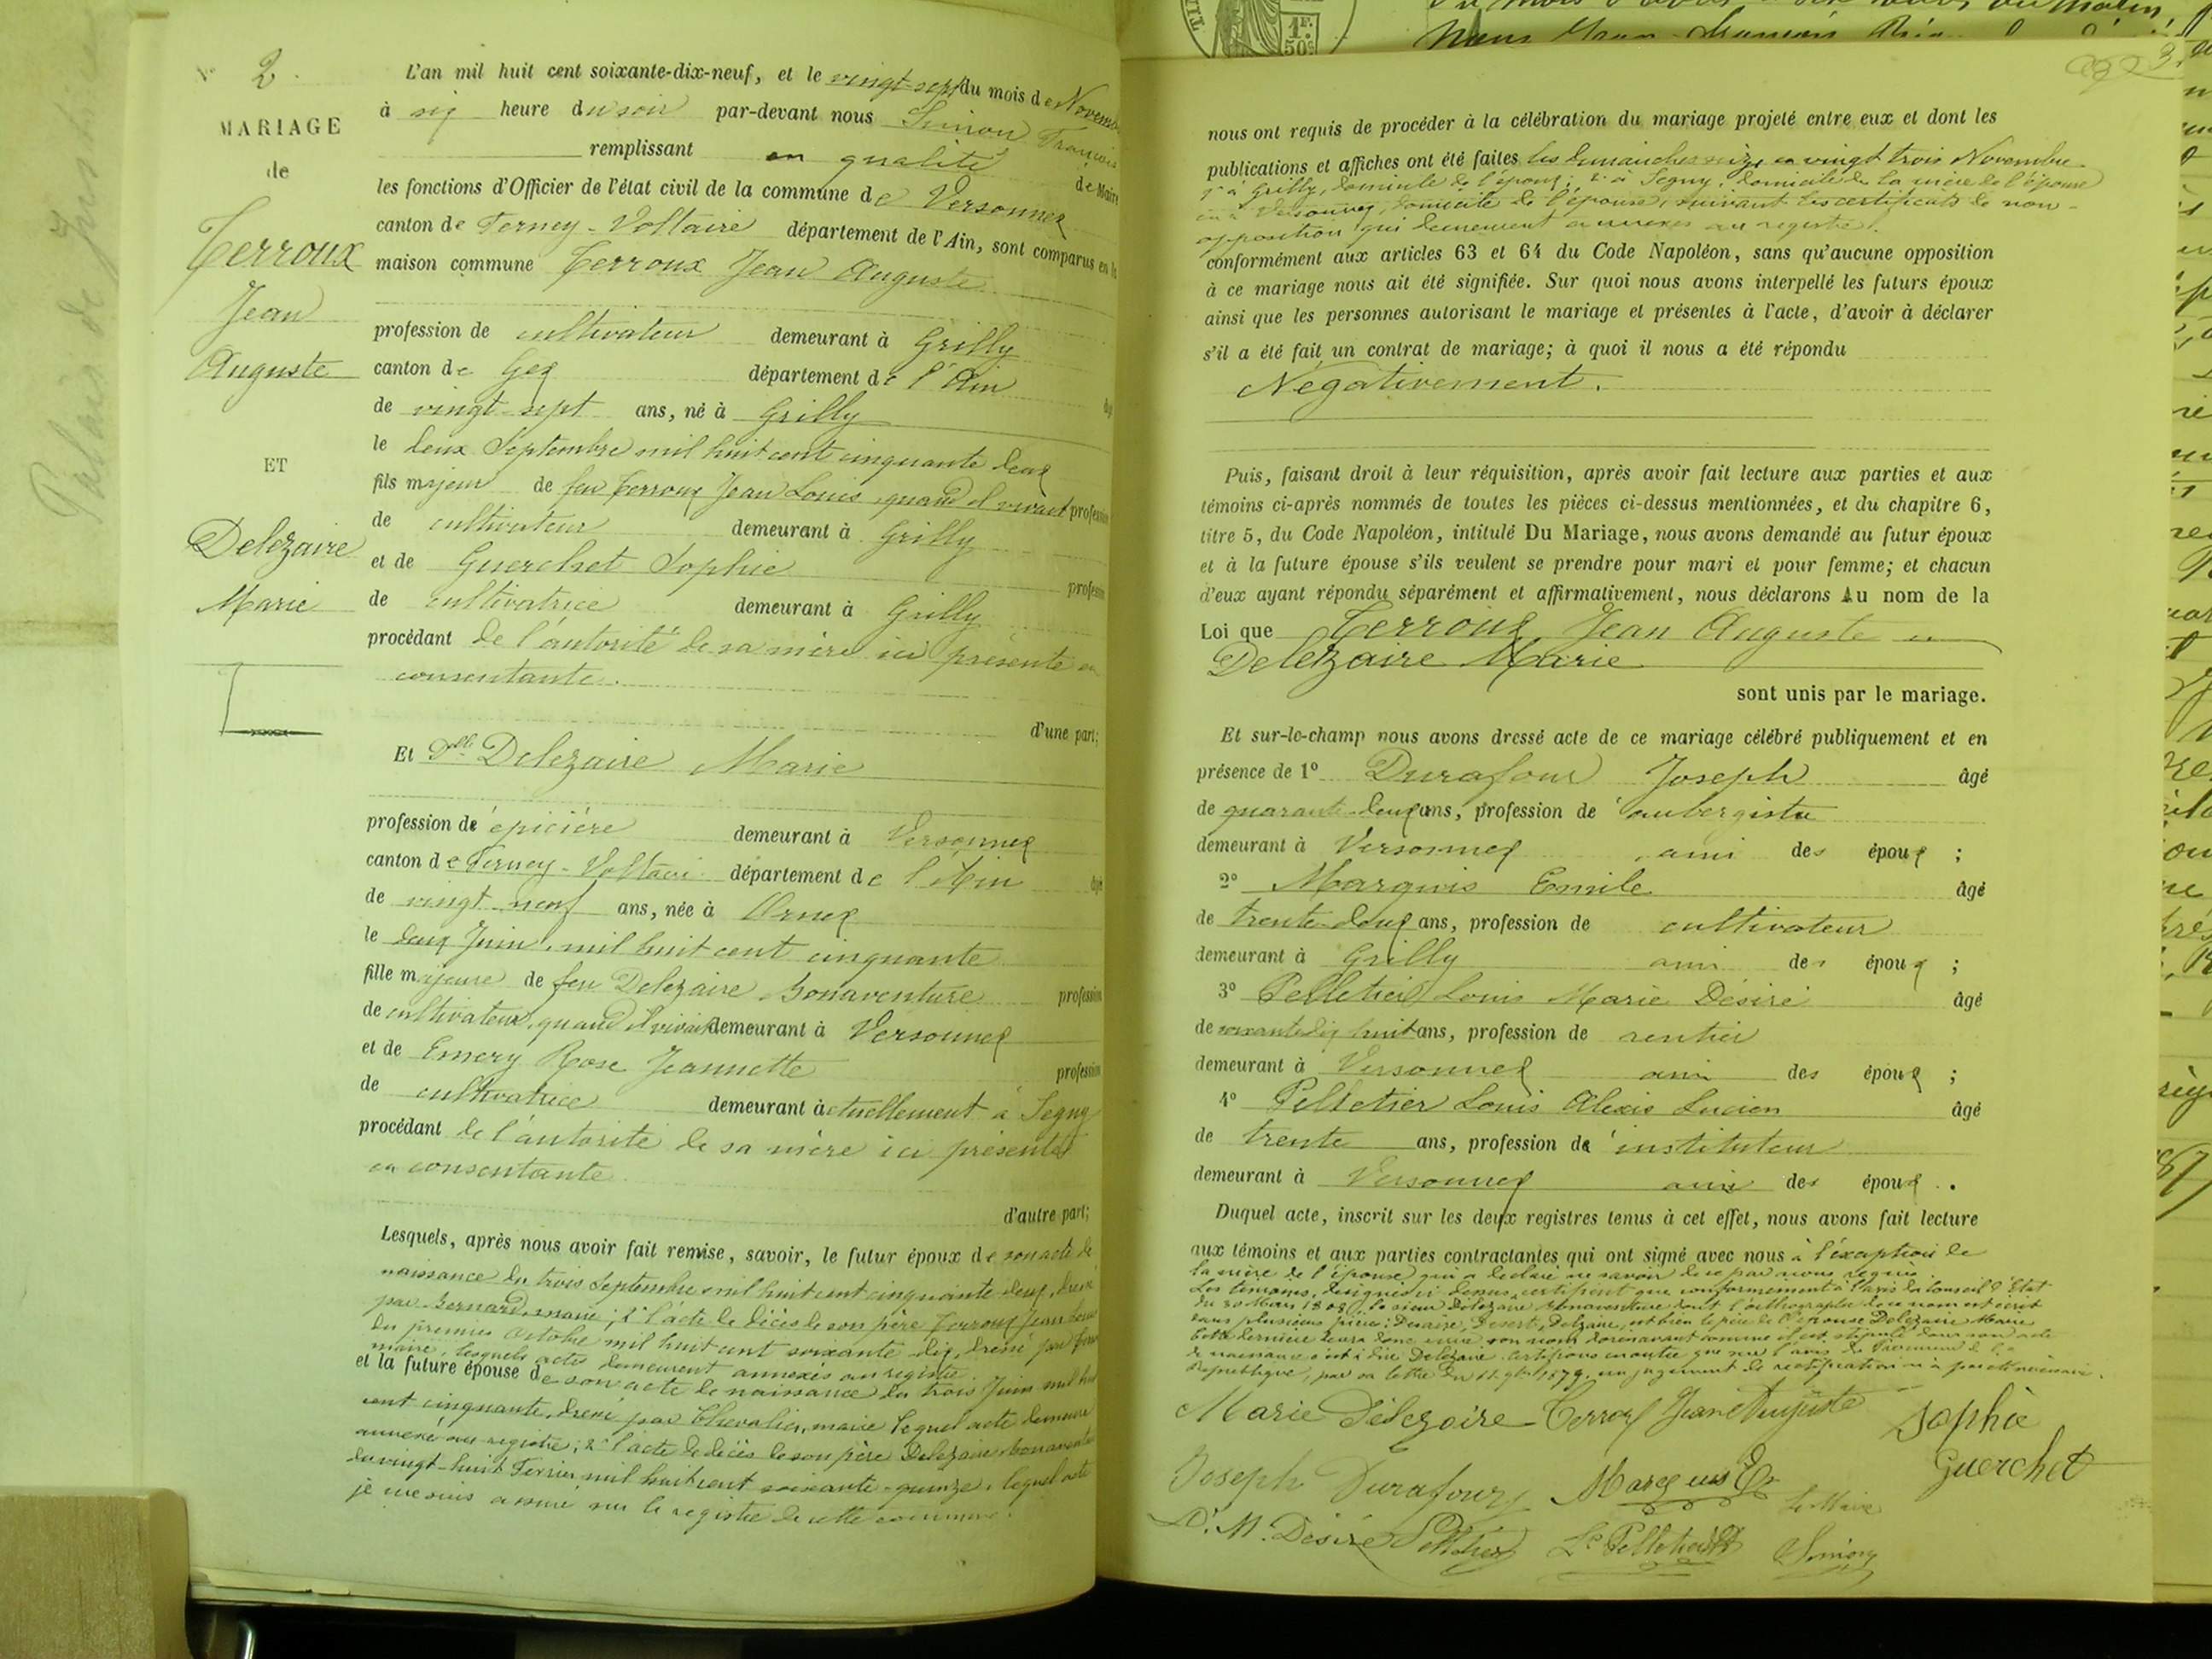 N° 2.
MARIAGE
de
Terroux
Jean
Auguste
ET
Delezaire
Marie
L'an mil huit cent soixante-dix-neuf, et le vingt-sept du mois de Novembre
à six heure du soir par-devant nous Simon François
remplissant en qualité de Maire
les fonctions d'Officier de l'état civil de la commune de Versonnex
canton de Ferney-Voltaire département de l'Ain, sont comparus en la
maison commune Terroux Jean Auguste
profession de cultivateur demeurant à Grilly
canton de Gex département de l'Ain
de vingt-sept ans, né à Grilly
le deux Septembre mil huit cent cinquante deux
fils majeur de feu Terroux Jean Louis, quand il vivait profession
de cultivateur demeurant à Grilly
et de Guerchet Sophie profession
de cultivatrice demeurant à Grilly
procédant de l'autorité de sa mère ici présente et
consentante.
d'une part;
Et Dlle Delezaire Marie
profession de épicière demeurant à Versonnex
canton de Ferney-Voltaire département de l'Ain
de vingt neuf ans, née à Ornex
le deux Juin, mil huit cent cinquante
fille majeure de feu Delezaire Bonaventure profession
de cultivateur, quand il vivait demeurant à Versonnex
et de Emery Rose Jeannette profession
de cultivatrice demeurant actuellement à Segny
procédant de l'autorité de sa mère ici présente
et consentante
d'autre part;
Lesquels, après nous avoir fait remise, savoir, le futur époux de son acte de
naissance du trois Septembre mil huit cent cinquante deux, dressé
par Bernard, maire; 2° l'acte de décès de son père Terroux Jean Louis
du premier Octobre mil huit cent soixante dix, dressé par
maire, lesquels actes demeurent annexés au registre.
et la future épouse de son acte de naissance du trois Juin mil huit
cent cinquante, dressé par Chevalier, maire lequel acte demeure
annexé au registre; 2° l'acte de décès de son père Delezaire Bonaventure
du vingt-huit Février mil huit cent soixante-quinze, lequel acte
je me suis assuré sur le registre de cette commune.
nous ont requis de procéder à la célébration du mariage projeté entre eux et dont les
publications et affiches ont été faites les dimanches seize et vingt trois Novembre
1° à Grilly, domicile de l'époux; 2° à Segny, domicile de la mère de l'épouse
et à Versonnex, domicile de l'épouse, suivant les certificats de non-
opposition qui demeurent annexés au registre.
conformément aux articles 63 et 64 du Code Napoléon, sans qu'aucune opposition
à ce mariage nous ait été signifiée. Sur quoi nous avons interpellé les futurs époux
ainsi que les personnes autorisant le mariage et présentes à l'acte, d'avoir à déclarer
s'il a été fait un contrat de mariage; à quoi il nous a été répondu
Négativement.
Puis, faisant droit à leur réquisition, après avoir fait lecture aux parties et aux
témoins ci-après nommés de toutes les pièces ci-dessus mentionnées, et du chapitre 6,
titre 5, du Code Napoléon, intitulé Du Mariage, nous avons demandé au futur époux
et à la future épouse s'ils veulent se prendre pour mari et pour femme; et chacun
d'eux ayant répondu séparément et affirmativement, nous déclarons Au nom de la
Loi que Terroux Jean Auguste et
Delezaire Marie
sont unis par le mariage.
Et sur-le-champ nous avons dressé acte de ce mariage célébré publiquement et en
présence de 1° Durafour Joseph âgé
de quarante-deux ans, profession de aubergiste
demeurant à Versonnex, ami des époux;
2° Marquis Emile âgé
de trente-deux ans, profession de cultivateur
demeurant à Grilly ami des époux;
3° Pelletier Louis Marie Désiré âgé
de soixante dix huit ans, profession de rentier
demeurant à Versonnex ami des époux;
4° Pelletier Louis Alexis Lucien âgé
de trente ans, profession de instituteur
demeurant à Versonnex ami des époux.
Duquel acte, inscrit sur les deux registres tenus à cet effet, nous avons fait lecture
aux témoins et aux parties contractantes qui ont signé avec nous à l'exception de
la mère de l'épouse qui a déclaré ne savoir de ce par nous requise
Les témoins, désignés ci-dessus, certifient que conformément à l'avis du Conseil d'Etat
du 30 Mars 1808, le sieur Delezaire Bonaventure dont l'orthographe de ce nom est écrit
dans plusieurs pièces: Desaire, Desert, Delzaire, est bien le père de l'épouse Delezaire Marie
Cette dernière devra donc écrire son nom dorénavant comme il est stipulé dans son acte
de naissance c'est à dire Delezaire. Certifions en outre que sur l'avis du Procureur de la
République, par sa lettre du 1879, un jugement de rectification n'a pas été nécessaire.
Marie Délezaire Terroux Jean Auguste Sophie
Guerchet
Joseph Durafour Marquis E. Le Maire
L. M. Désiré Pelletier L. Pelletier Simon